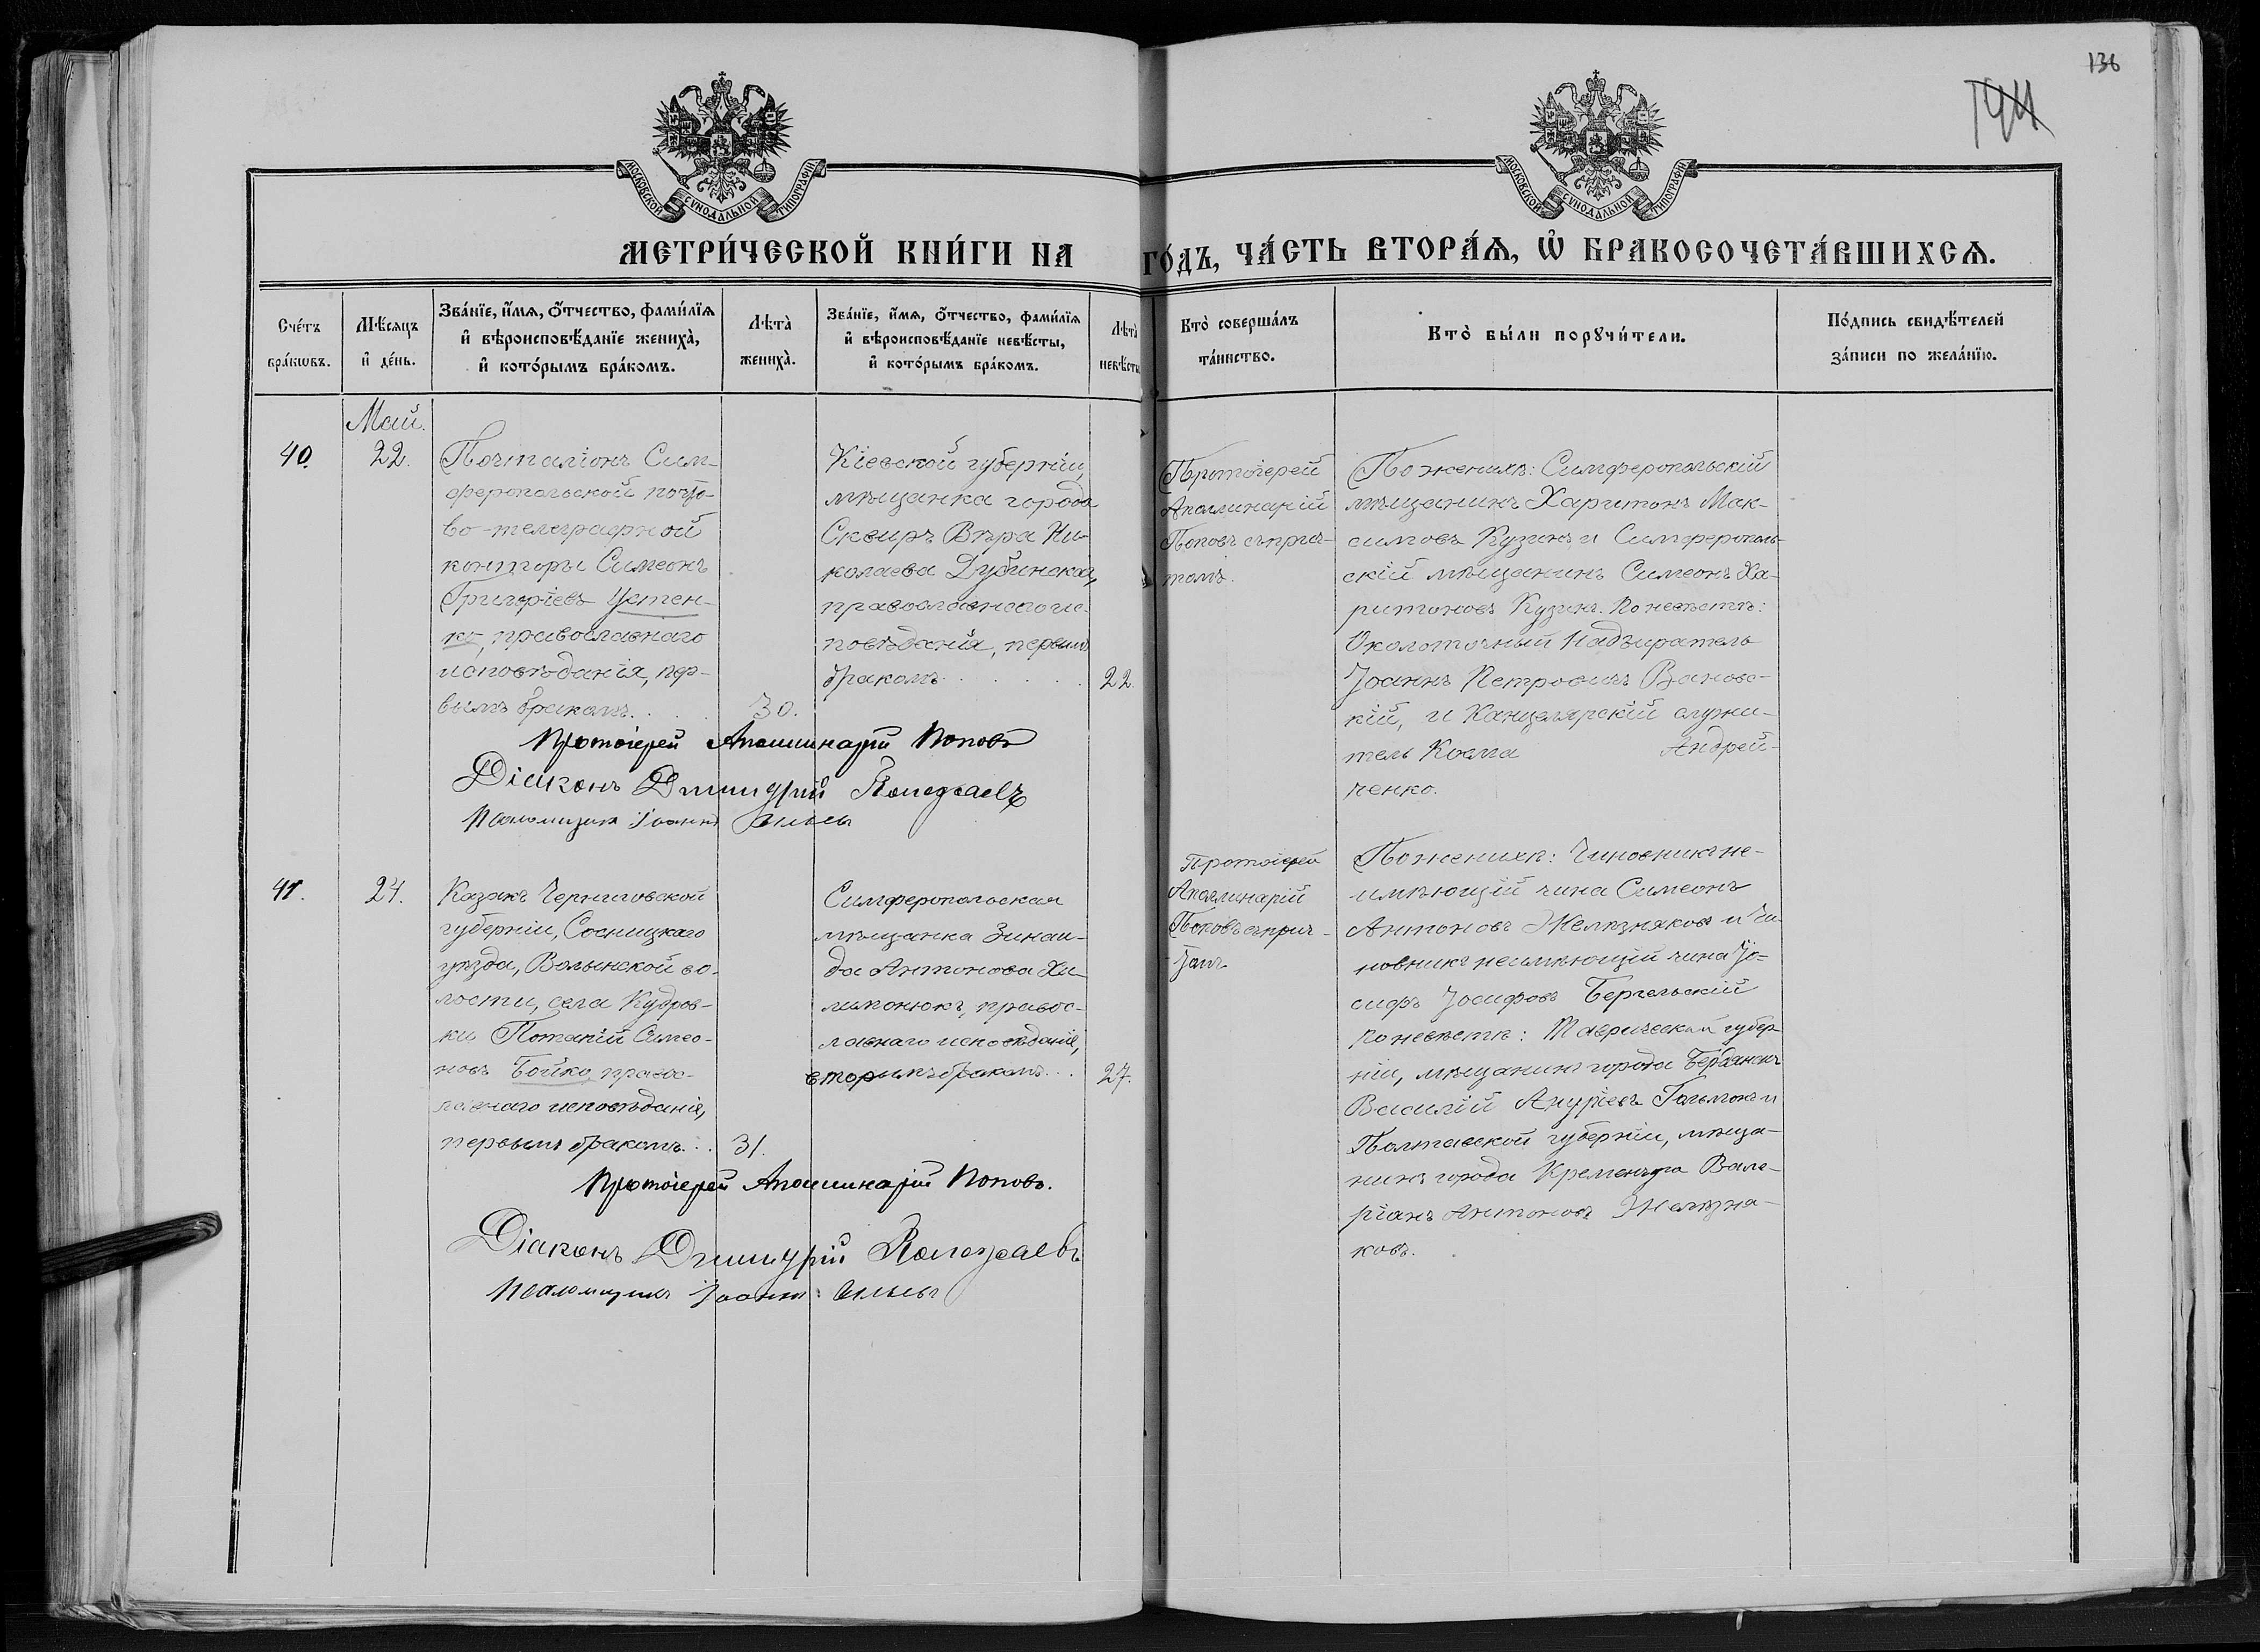 136
194
МОСКОВСКОЙ СѴНОДАЛЬНОЙ ТИПОГРАФІИ
МОСКОВСКОЙ СѴНОДАЛЬНОЙ ТИПОГРАФІИ
МЕТРИ́ЧЕСКОЙ КНИ́ГИ НА ГО́ДЪ, ЧА́СТЬ ВТОРА́Ѧ, Ѡ҆ БРАКОСОЧЕТА́ВШИХСѦ.
Сче́тъ
бра́кѡвъ.
Мѣ́сяцъ
и҆ де́нь.
Зва́нїе, и҆́мѧ, ѻ҆́тчество, фами́лїѧ
и҆ вѣроисповѣ́данїе жениха̀,
и҆ кото́рымъ бра́комъ.
Лѣта̀
жениха̀.
Зва́нїе, и҆́мѧ, ѻ҆́тчество, фами́лїѧ
и҆ вѣроисповѣ́данїе невѣ́сты,
и҆ кото́рымъ бра́комъ.
Лѣта̀
невѣ́сты
Кто̀ соверша́лъ
та́инство.
Кто̀ бы́ли порꙋчи́тели.
По́дпись свидѣ́телей
за́писи по жела́нїю.
Май.
40.
22.
Почталіонъ Сим-
феропольской почто-
во-телеграфной
конторы Симеонъ
Григоріевъ Устен-
ко, православнаго
исповѣданія, пер-
вымъ бракомъ. . . .
30.
Кіевской губерніи,
мѣщанка города
Сквиръ Вѣра Ни-
колаева Дубинская,
православнаго ис-
повѣданія, первымъ
бракомъ . . . . .
22.
Протоіерей
Аполлинарій
Поповъ съ прич-
томъ.
По женихѣ: Симферопольскій
мѣщанинъ Харитонъ Мак-
симовъ Кузинъ и Симферополь-
скій мѣщанинъ Симеонъ Ха-
ритоновъ Кузинъ. По невѣстѣ:
Околоточный Надзиратель
Іоаннъ Петровичъ Вановс-
кій, и Канцелярскій служи-
тель Косма Андрей-
ченко.
Протоіерей Аполлинарій Поповъ
Діаконъ Димитрій
Псаломщикъ Іоаннъ
41.
24.
Казакъ Черниговской
губерніи, Сосницкаго
уѣзда, Волынской во-
лости, села Кудров-
ки Потапій Симео-
новъ Бойко, правос-
лавнаго исповѣданія,
первымъ бракомъ. . .
31.
Симферопольская
мѣщанка Зинаи-
да Антонова Хи-
лимонюкъ, правос-
лавнаго исповѣданія,
вторымъ бракомъ. . .
27.
Протоіерей
Аполлинарій
Поповъ съ прич-
томъ
По женихѣ: Чиновникъ не-
имѣющій чина Симеонъ
Антоновъ Желѣзняковъ и Чи-
новникъ неимѣющій чина Іо-
сифъ Іосифовъ Бергельскій
По невѣстѣ: Таврической губер-
ніи, мѣщанинъ города Бердянска
Василій Гольмонъ и
Полтавской губерніи, мѣща-
нинъ города Кременчуга Вале-
ріанъ Антоновъ Желѣзня-
ковъ.
Протоіерей Аполлинарій Поповъ.
Діаконъ Димитрій
Псаломщикъ Іоаннъ